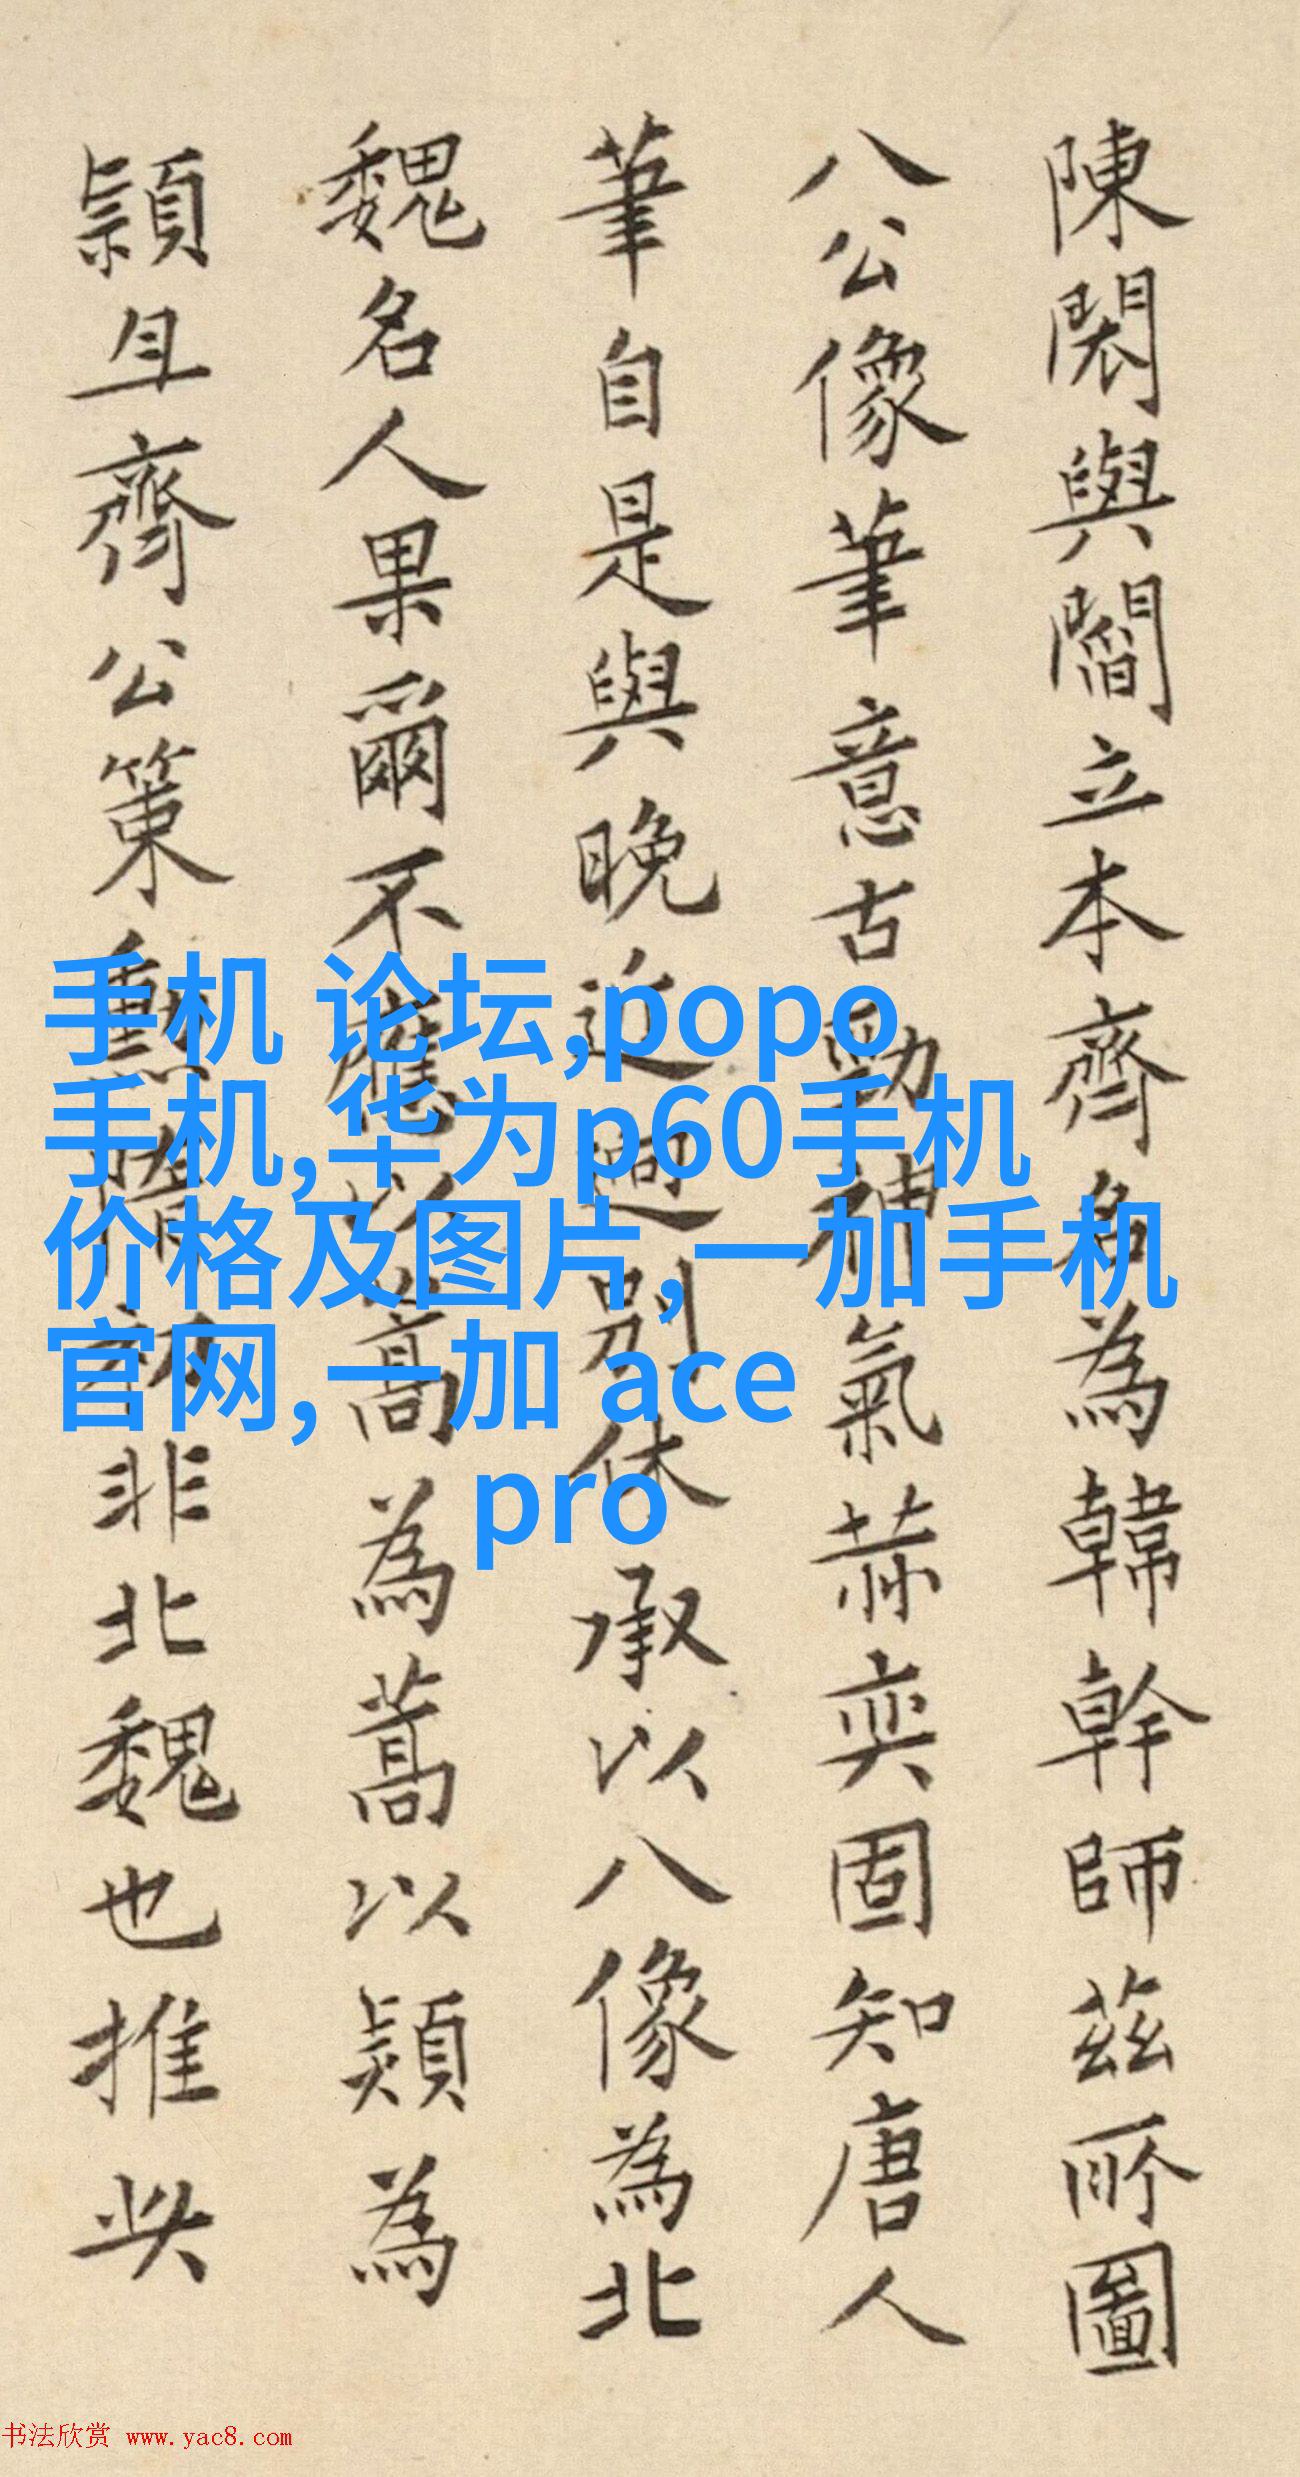 陳閎與閻立本齊名為韓幹師茲所圖
八公像筆意古勁神氣赫奕固知唐人
筆自是與晚近迥別休承以八像為北
魏名人果爾不應以蒿為蒿以熲為
潁且齊公策勳隋初非北魏也推此
手机 论坛,popo
手机,华为p60手机
价格及图片,一加手机
官网,一加 ace
pro
书法欣赏 www.yac8.com